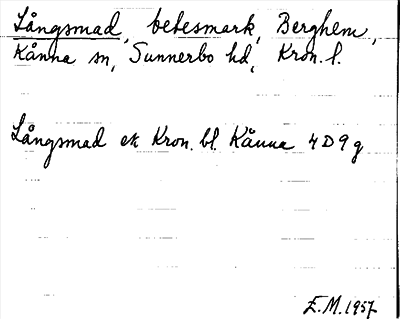 Långsmad, betesmark, Berghem,
Kånna sn, Sunnerbo hd, Kron. l.
Långsmad ek Kron. bl. Kånna 4D9g
E.M. 1957